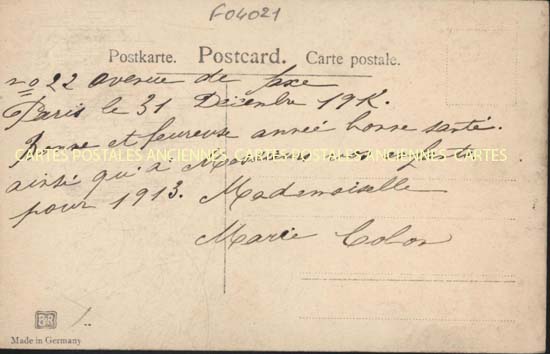 F04021
Postkarte. Postcard. Carte postale.
no 22 avenue de Saxe
Paris le 31 Décembre 19
Bonne et heureuse année bonne santé.
CARTES POSTALES ANCIENNES CARTES POSTALES ANCIENNES CARTES
ainsi qu'a
pour 1913. Mademoiselle
Marie Colon
BR
Made in Germany